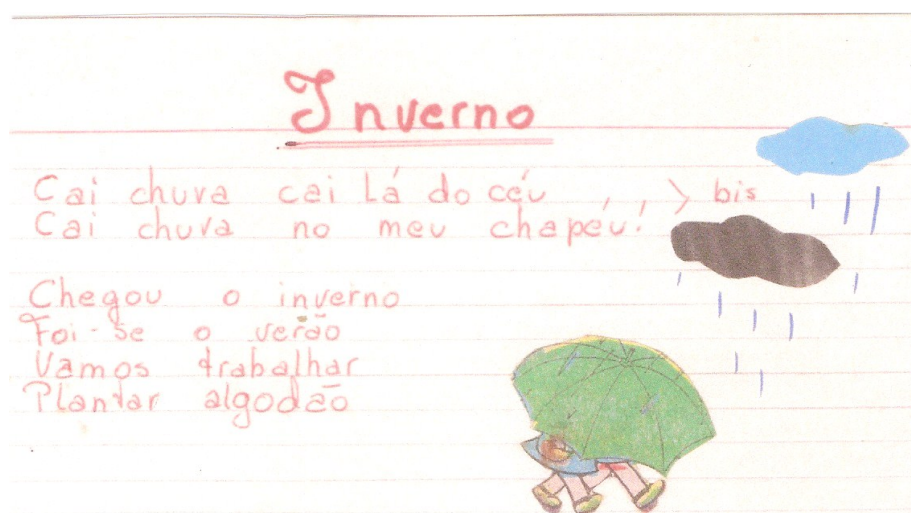 Inverno
Cai chuva cai Lá do céu > bis
Cai chuva no meu chapéu!
Chegou o inverno
Foi-se o verão
Vamos trabalhar
Plantar algodão